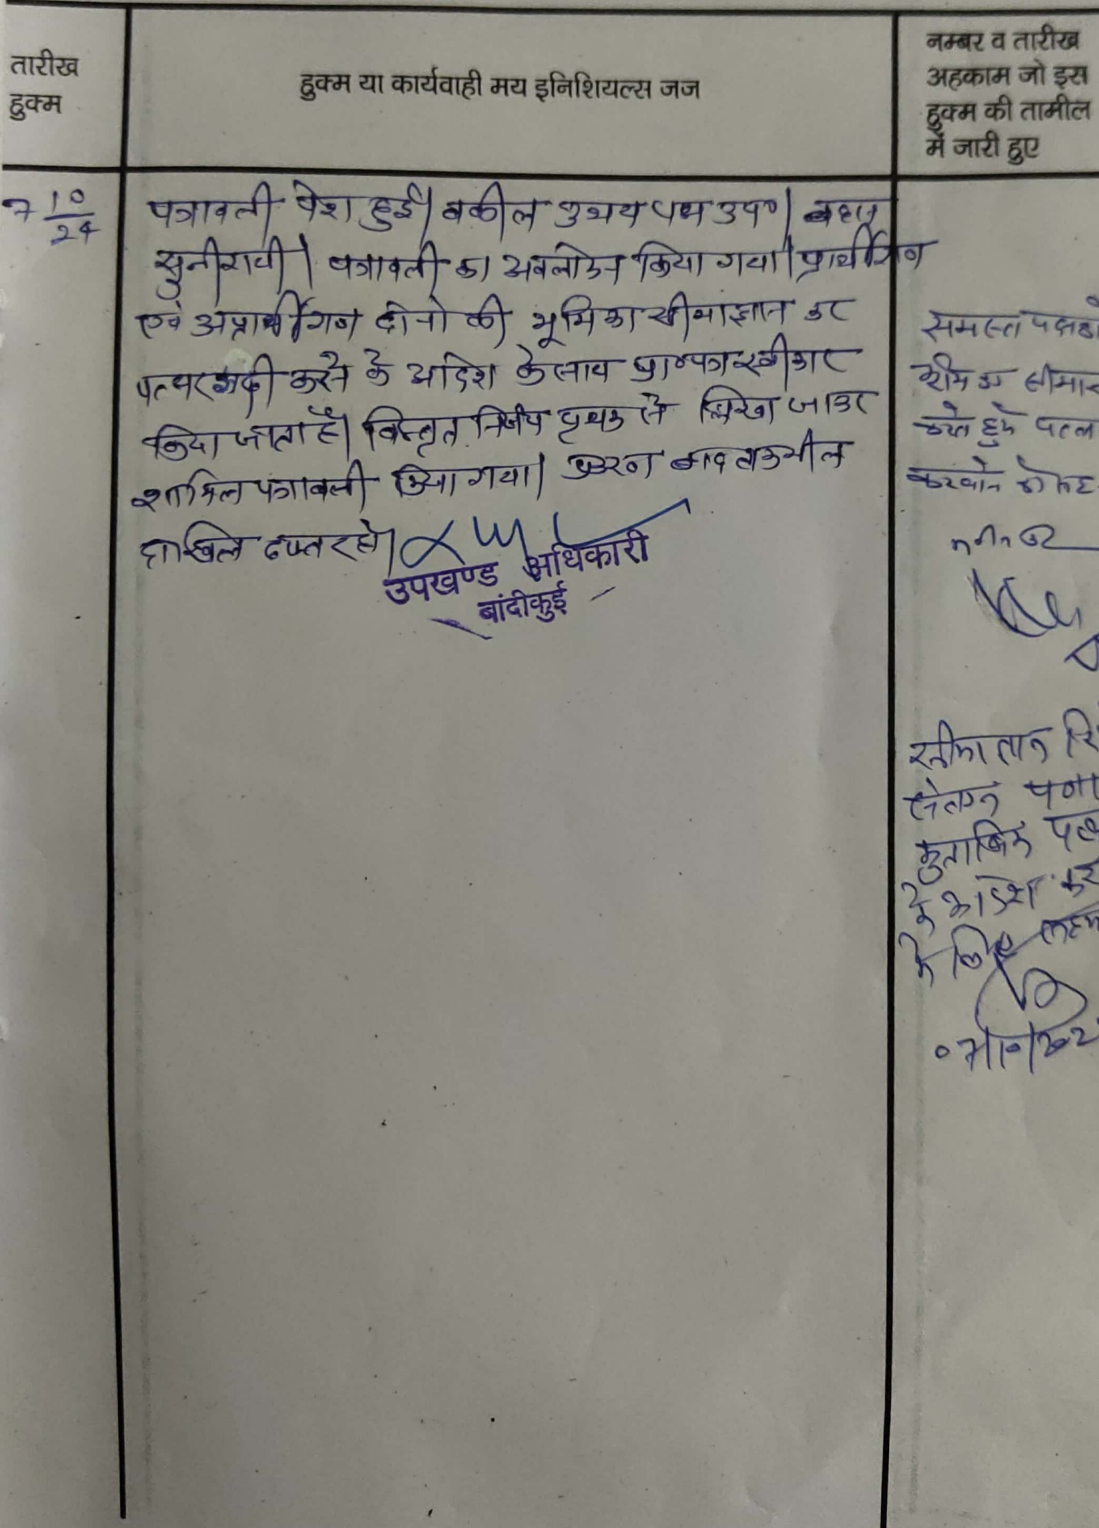 तारीख
हुक्म
हुक्म या कार्यवाही मय इनिशियल्स जज
नम्बर व तारीख
अहकाम जो इस
हुक्म की तामील
में जारी हुए
7 10/24
पत्रावली पेश हुई। वकील उभय पक्ष उप०। बहस
सुनी गयी। पत्रावली का अवलोकन किया गया। प्रार्थीगण
एवं अप्रार्थीगण दोनो की भूमि का सीमाज्ञान कर
पत्थरगढी करने के आदेश के साथ प्रा०पत्र स्वीकार
किया जाता है। विस्तृत निर्णय पृथक से लिखा जाकर
शामिल पत्रावली किया गया। प्रकरण बाद तकमील
दाखिल दफ्तर हो।
उपखण्ड अधिकारी
बांदीकुई
समस्त
सीमा
करते हुये
मुताबिक
के आदेश
के लिए